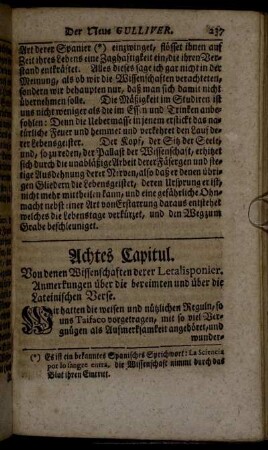 Der Neue GULLIVER. 237
Art derer Spanier (*) einzwinget, flösset ihnen auf
Zeit ihres Lebens eine Zaghaftigkeit ein, die ihren Ver-
stand entkräftet. Alles dieses sage ich gar nicht in der
Meinung, als ob wir die Wissenschaften verachteten,
sondern wir behaupten nur, daß man sich damit nicht
übernehmen solle. Die Mäßigkeit im Studiren ist
uns nicht weniger als die im Essen und Trinken anbe-
fohlen: Denn die Uebermasse in jenem erstickt das na-
türliche Feuer und hemmet und verkehret den Lauf de-
rer Lebensgeister. Der Kopf, der Sitz der Seele,
und, so zu reden, der Pallast der Wissenschaft, erhitzet
sich durch die unabläßige Arbeit derer Fäsergen und ste-
tige Ausdehnung derer Nerven, also daß er denen übri-
gen Gliedern die Lebensgeister, deren Ursprung er ist,
nicht mehr mittheilen kann, und eine gefährliche Ohn-
macht nebst einer Art von Erstarrung daraus entstehet
welches die Lebenstage verkürzet, und den Weg zum
Grabe beschleuniget.
Achtes Capitul.
Von denen Wissenschaften derer Letalisponier.
Anmerkungen über die bereimten und über die
Lateinischen Verse.
Wir hatten die weisen und nützlichen Reguln, so
uns Taifaco vorgetragen, mit so viel Ver-
gnügen als Aufmerksamkeit angehöret, und
wunder-
(*) Es ist ein bekanntes Spanisches Sprichwort: La Sciencia
por lo sangre entra, die Wissenschaft nimmt durch das
Blut ihren Eintrit.